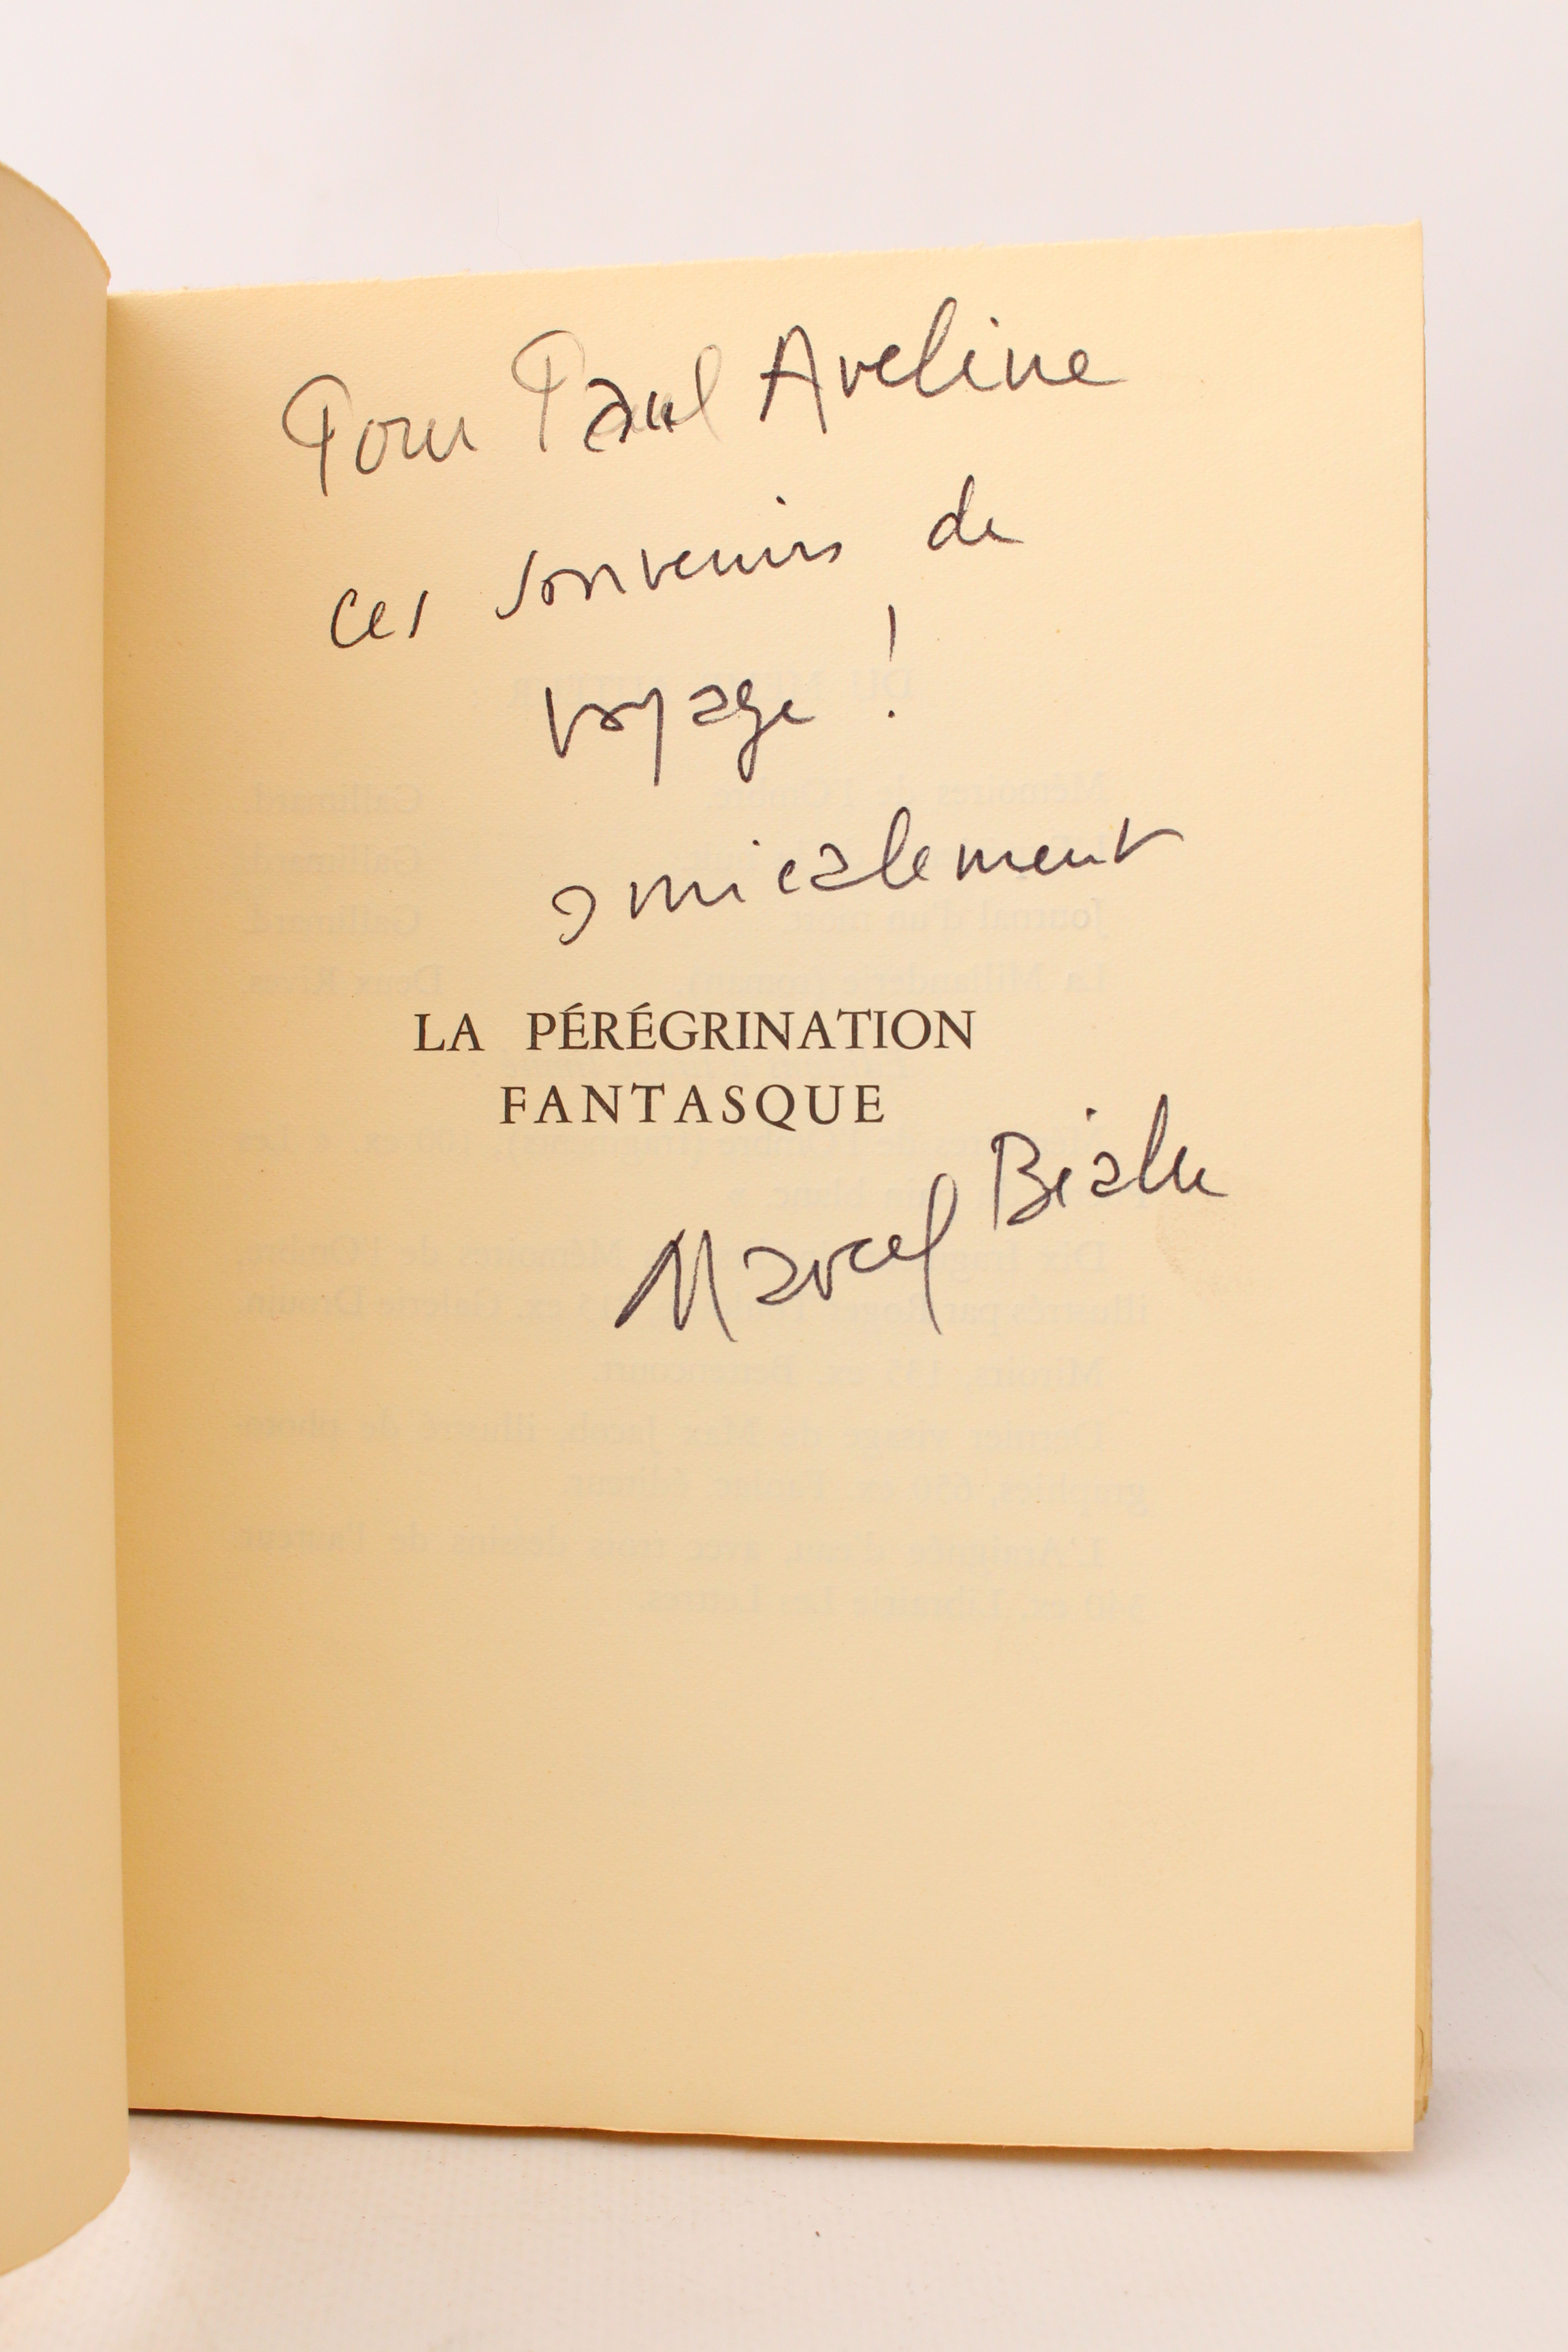 Pour Paul Aveline
ces souvenirs de
voyage !
amicalement
LA PÉRÉGRINATION
FANTASQUE
Marcel Béalu